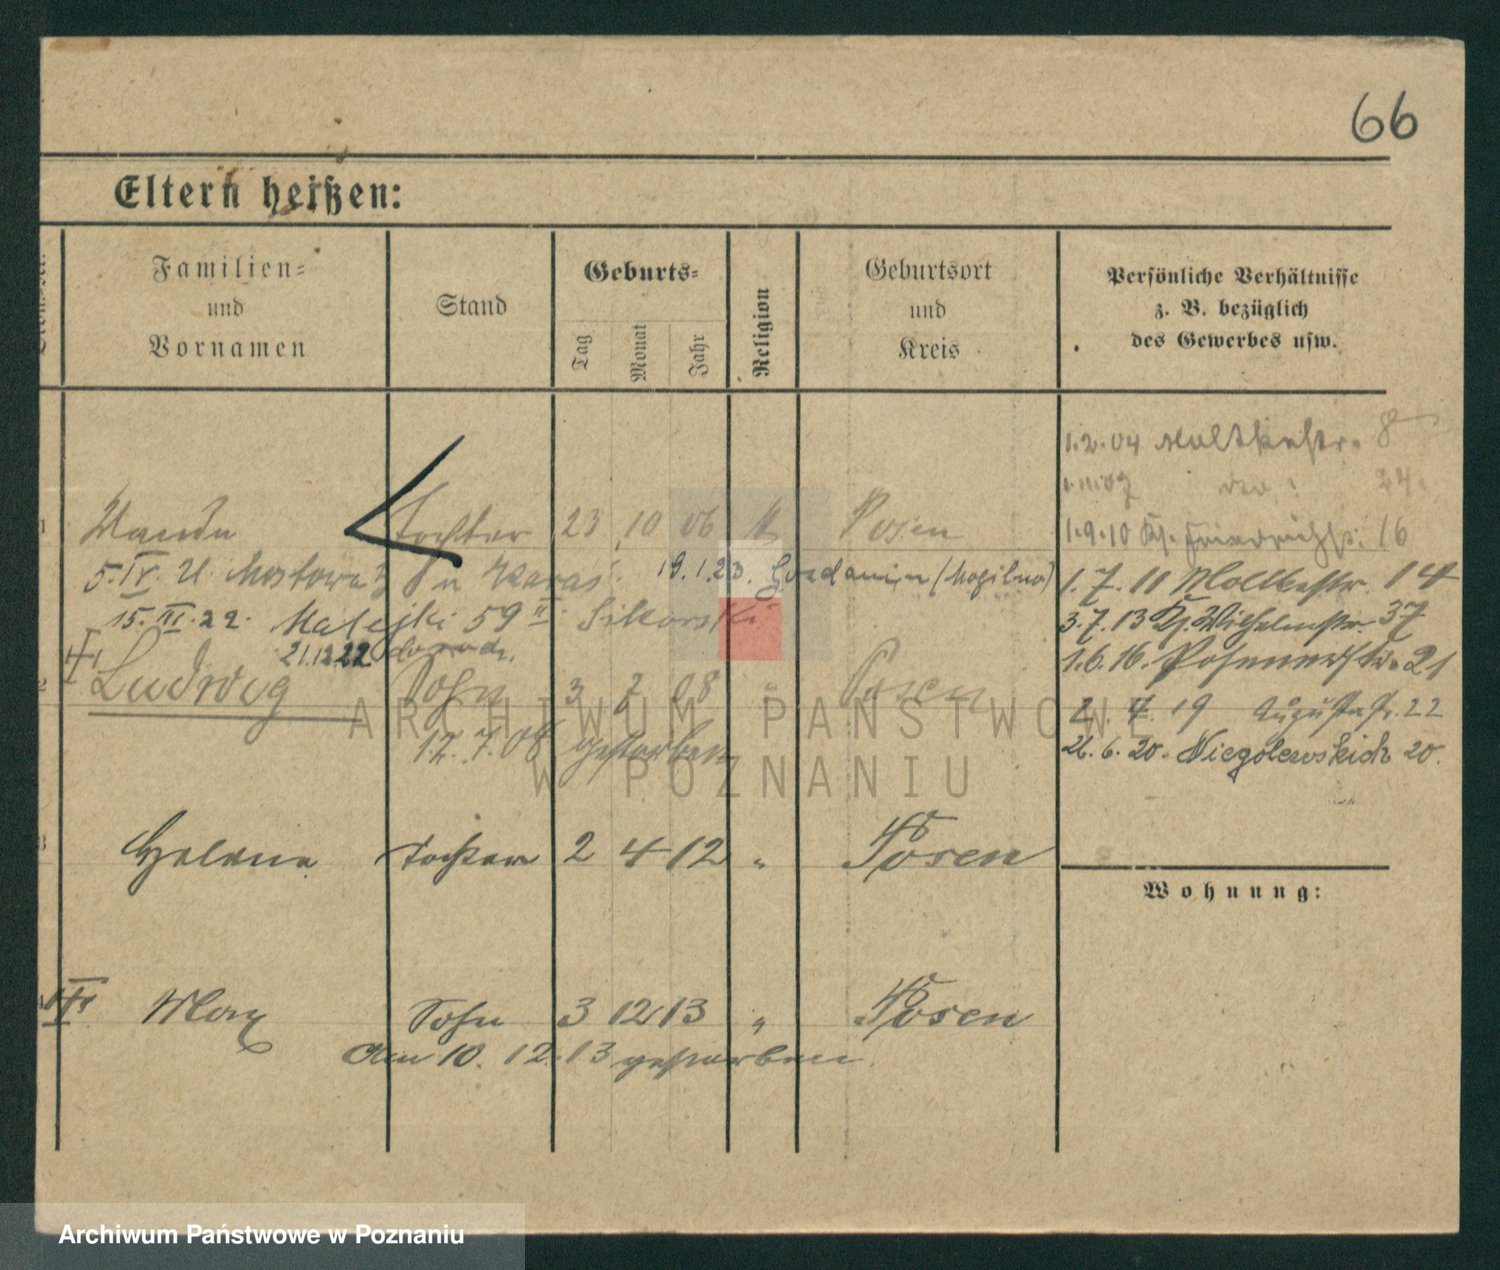 66
Eltern heißen:
Familien-
und
Vornamen
Stand
Geburts-
Tag
Monat
Jahr
Religion
Geburtsort
und
Kreis
Persönliche Verhältnisse
z. B. bezüglich
des Gewerbes usw.
1.2.04 Moltkestr. 8
74.
1 Wanda Tochter 23 10 06 K Posen
1.9.10 16
5. IV. 21. Mostowa 3 u Karaś 19.1.23. (Mogilno)
1.7.11 Moltkestr. 14
15. III. 22. Matejki 59 II Sikorski
3.7.13 Kg. Wilhelmstr. 37
21.12.22
1.6.16. Posenerstr. 21
2 Ludwig Sohn 3 7 08 " Posen
2. 7. 19 Augustastr. 22
12.7.08 gestorben
21.6.20. Niegolewskich 20.
3 Helene Tochter 2 4 12 " Posen
Wohnung:
Max Sohn 3 12 13 " Posen
Am 10. 12. 13 gestorben.
ARCHIWUM PAŃSTWOWE
W POZNANIU
Archiwum Państwowe w Poznaniu